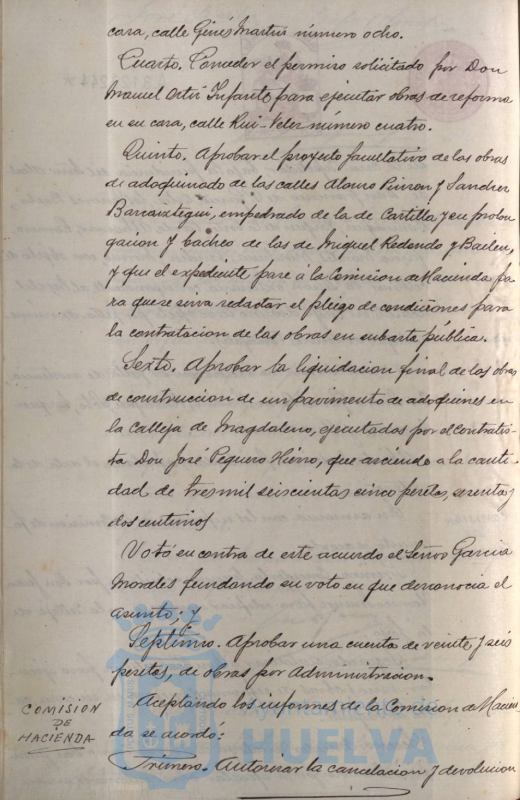 casa, calle Ginés Martin número ocho.
Cuarto. Conceder el permiso solicitado por Don
Manuel Ortiz Infante, para ejecutar obras de reforma
en su casa, calle Rui-Velez número cuatro.
Quinto. Aprobar el proyecto facultativo de las obras
de adoquinado de las calles Alonso Pinzon y Sanchez
Barcaiztegui, empedrado de la de Castilla y su prolon
gacion y bacheo de las de Miguel Redondo y Bailen,
y que el expediente pase á la Comision de Hacienda pa
ra que se sirva redactar el pliego de condiciones para
la contratacion de las obras en subasta pública.
Sexto. Aprobar la liquidacion final de las obras
de construccion de un pavimento de adoquines en
la Calleja de Magdaleno, ejecutadas por el Contratis
ta Don José Peguero Hierro, que asciende a la canti
dad de tres mil seiscientas cinco pesetas, sesenta y
dos centimos
Votó en contra de este acuerdo el Señor Garcia
Morales fundando su voto en que desconocia el
asunto; y
Septimo. Aprobar una cuenta de veinte y seis
pesetas, de obras por Administracion.
Aceptando los informes de la Comision de Hacien
COMISION
DE
HACIENDA
da se acordó:
HUELVA
Primero. Autorizar la cancelacion y devolucion